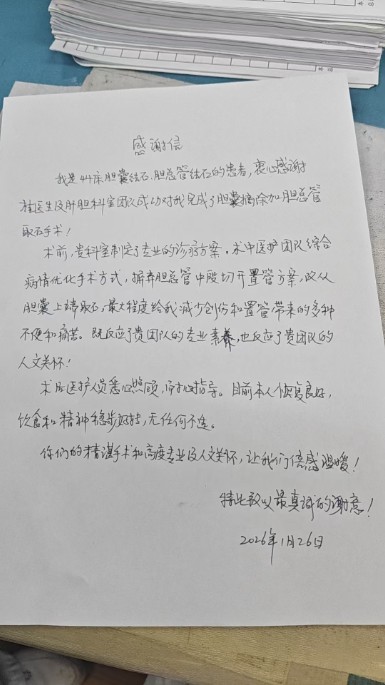 感谢信
我是44床胆囊结石、胆总管结石的患者，衷心感谢
医生及肝胆科室团队成功对我完成了胆囊摘除加胆总管
取石手术！
术前，贵科室制定了专业的诊疗方案。术中医护团队综合
病情优化手术方式，摒弃胆总管中段切开置管方案，仅从
胆囊上端取石，最大程度给我减少创伤和置管带来的多种
不便和痛苦。既反应了贵团队的专业素养，也反应了贵团队的
人文关怀！
术后医护人员悉心照顾，指导。目前本人恢复良好，
饮食和精神稳步好转，无任何不适。
你们的精湛手术和高度专业及人文关怀，让我们倍感温暖！
特此致以最真诚的谢意！
2026年1月26日